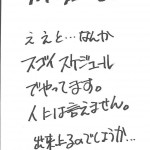 ええと…なんか
スゴイスケジュール
でやってます。
人には言えません。
出来上るのでしょうか…